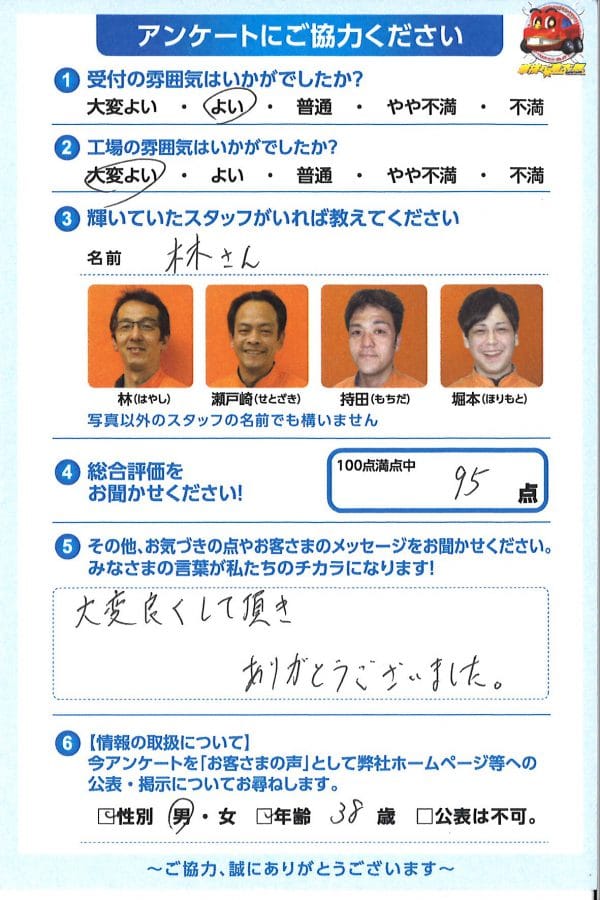 アンケートにご協力ください
1 受付の雰囲気はいかがでしたか?
大変よい ・ よい ・ 普通 ・ やや不満 ・ 不満
2 工場の雰囲気はいかがでしたか?
大変よい ・ よい ・ 普通 ・ やや不満 ・ 不満
3 輝いていたスタッフがいれば教えてください
名前 林さん
林(はやし) 瀬戸崎(せとざき) 持田(もちだ) 堀本(ほりもと)
写真以外のスタッフの名前でも構いません
4 総合評価を
お聞かせください!
100点満点中 95 点
5 その他、お気づきの点やお客さまのメッセージをお聞かせください。
みなさまの言葉が私たちのチカラになります!
大変良くして頂き
ありがとうございました。
6 【情報の取扱について】
今アンケートを「お客さまの声」として弊社ホームページ等への
公表・掲示についてお尋ねします。
☑性別 男・女 ☑年齢 38 歳 □公表は不可。
～ご協力、誠にありがとうございます～